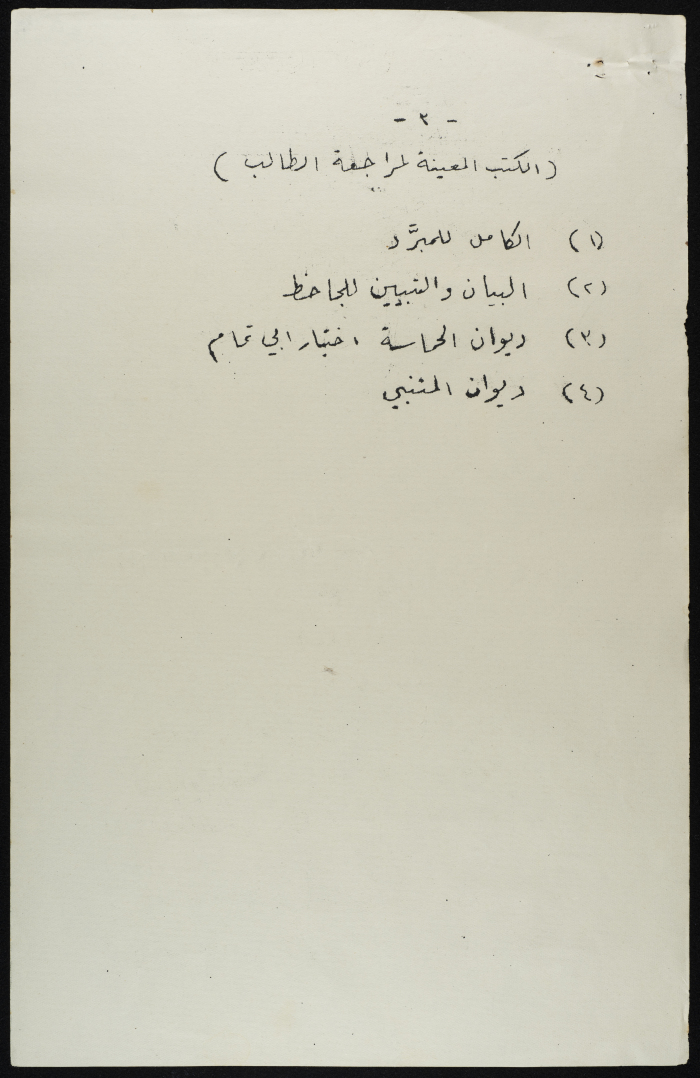 - ٣ -
(الكتب المعينة لمراجعة الطالب)
(١) الكامل للمبرَّد
(٢) البيان والتبيين للجاحظ
(٣) ديوان الحماسة ، اختيار ابي تمام
(٤) ديوان المتنبي